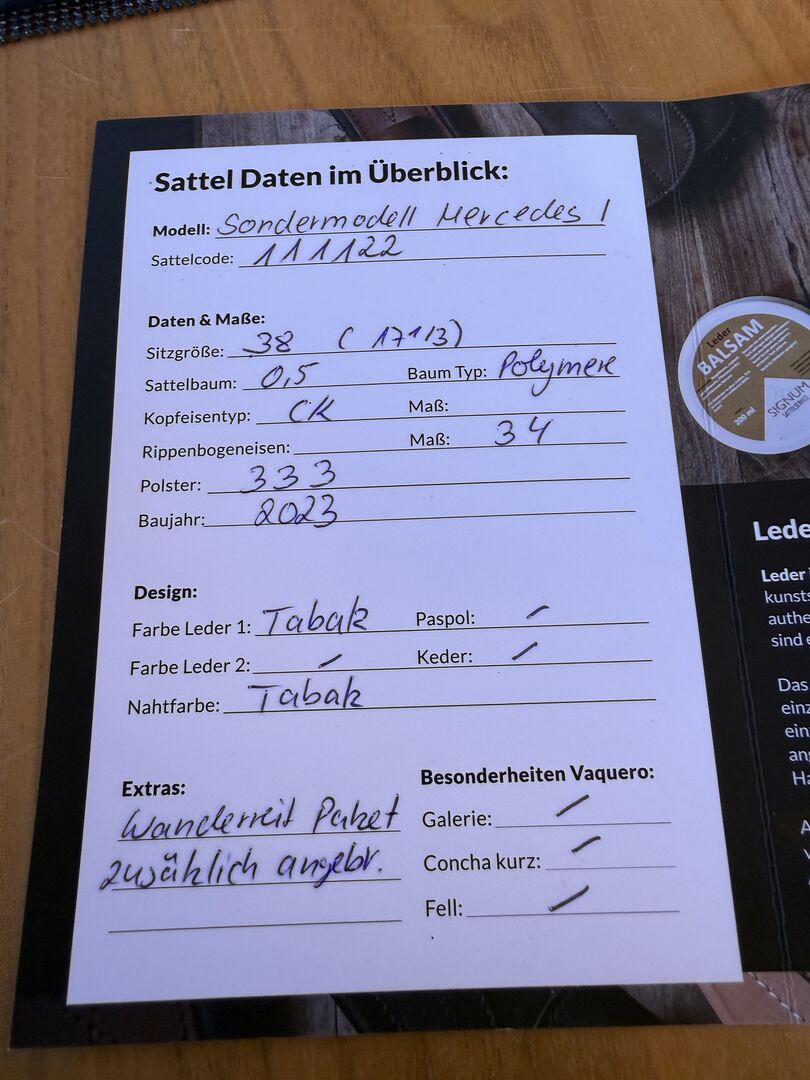 Sattel Daten im Überblick:
Modell: Sondermodell Mercedes I
Sattelcode: 111122
Daten & Maße:
Sitzgröße: 38 ( 171/3)
Sattelbaum: 0,5 Baum Typ: Polymere
Kopfeisentyp: CK Maß:
Rippenbogeneisen: Maß: 34
Polster: 333
Baujahr: 2023
Design:
Farbe Leder 1: Tabak Paspol: /
Farbe Leder 2: / Keder: /
Nahtfarbe: Tabak
Extras:
Wanderreit Paket
zusätzlich angebr.
Besonderheiten Vaquero:
Galerie: /
Concha kurz: /
Fell: /
Leder
BALSAM
200 ml
SIGNUM
SATTELSERVICE
Lede
Leder
kunsts
authe
sind e
Das
einz
ein
an
Ha
A